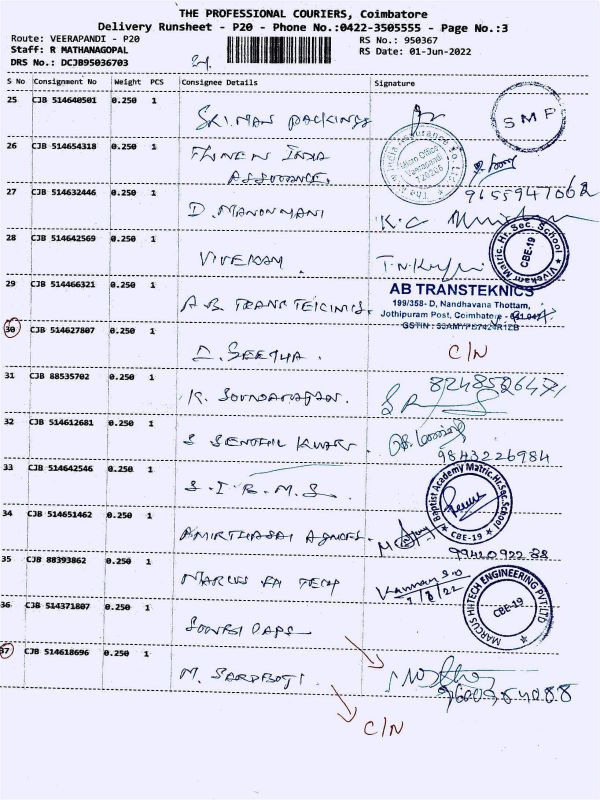 THE PROFESSIONAL COURIERS, Coimbatore
Delivery Runsheet - P20 - Phone No.:0422-3505555 - Page No.:3
Route: VEERAPANDI - P20
RS No.: 950367
Staff: R MATHANAGOPAL
RS Date: 01-Jun-2022
DRS No.: DCJB95036703
S No Consignment No Weight PCS Consignee Details Signature
25 CJB 514640501 0.250 1
SRIMAN PACKINGS
SMP
26 CJB 514654318 0.250 1
INDIA
Micro Office
Veerapandi
27 CJB 514632446 0.250 1
D. MANONMANI
K.C
28 CJB 514642569 0.250 1
VIVEKAM
Vivekam Matric. Hr. Sec. School
CBE-19
29 CJB 514466321 0.250 1
AB TRANSTEKNICS
199/358- D, Nandhavana Thottam,
Jothipuram Post, Coimbatore
30 CJB 514627807 0.250 1
SEETHA.
C/N
31 CJB 88535702 0.250 1
K. SOUNDARAJAN.
8248526471
32 CJB 514612681 0.250 1
S SENTHIL KUMAR.
9843226984
33 CJB 514642546 0.250 1
S.I.B.M.S.
Baptist Academy Matric.Hr.Sec.School
CBE-19
34 CJB 514651462 0.250 1
AMIRTHASAI
35 CJB 88393862 0.250 1
MARCUS HI TECH
MARCUS HITECH ENGINEERING PVT.LTD
CBE-19
36 CJB 514371807 0.250 1
37 CJB 514618696 0.250 1
C/N